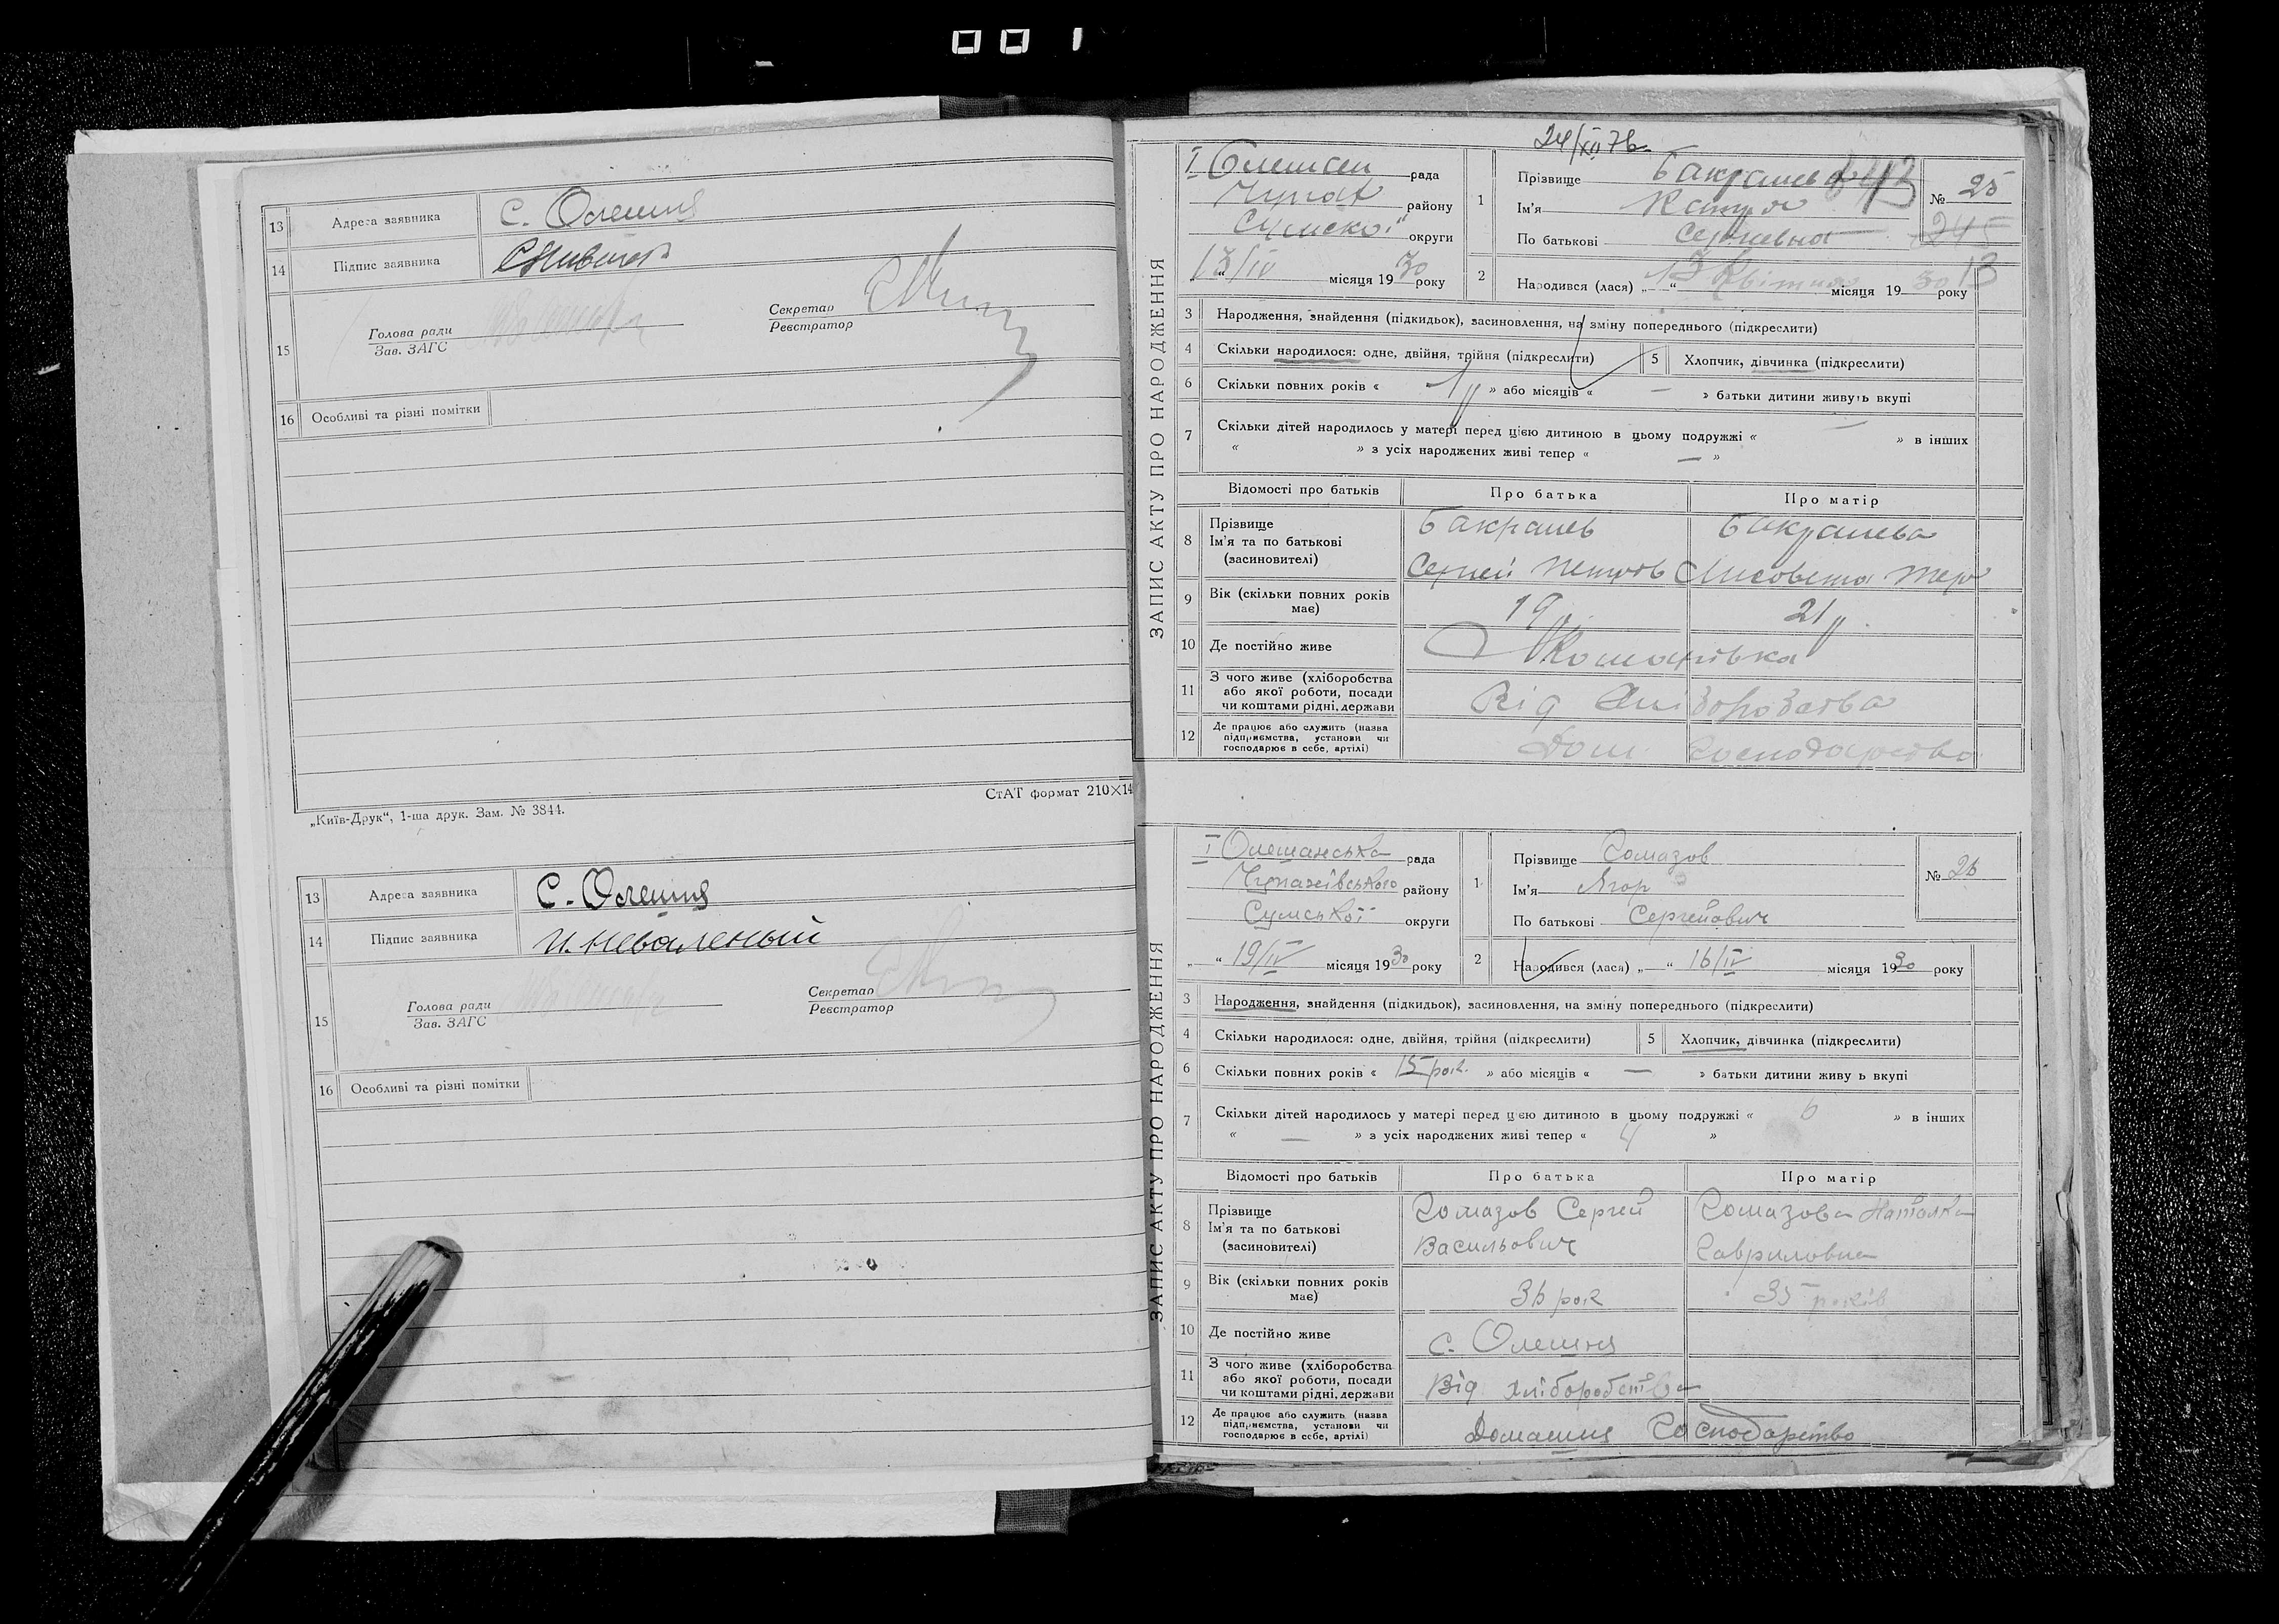 001
13 Адреса заявника С. Олешня
14 Підпис заявника
15 Голова ради
Зав. ЗАГС
Секретар
Реєстратор
16 Особливі та різні помітки
СтАТ формат 210×14
„Київ-Друк“, 1-ша друк. Зам. № 3844.
13 Адреса заявника С. Олешня
14 Підпис заявника И. Неваленый
15 Голова ради
Зав. ЗАГС
Секретар
Реєстратор
16 Особливі та різні помітки
24/XII 76
ЗАПИС АКТУ ПРО НАРОДЖЕННЯ
І Олешсан рада
Чупах району
Сумської округи
13/IV місяця 1930 року
1 Прізвище Бакрашева
Ім'я
По батькові Сергиевна
№ 25
245
2 Народився (лася) „13“ Квітня місяця 1930 року
13
3 Народження, знайдення (підкидьок), засиновлення, на зміну попереднього (підкреслити)
4 Скільки народилося: одне, двійня, трійня (підкреслити) 5 Хлопчик, дівчинка (підкреслити)
6 Скільки повних років « 1 р » або місяців « — » батьки дитини живуть вкупі
7 Скільки дітей народилось у матері перед цією дитиною в цьому подружжі « — » в інших
« » з усіх народжених живі тепер « — »
Відомості про батьків Про батька Про матір
8 Прізвище
Ім'я та по батькові
(засиновителі)
Бакрашев
Сергей Петров
Бакрашева
Лисовета
9 Вік (скільки повних років має) 19 р. 21 р.
10 Де постійно живе Комарівка
11 З чого живе (хліборобства
або якої роботи, посади
чи коштами рідні, держави
Від Хліборобства
12 Де працює або служить (назва
підприємства, установи чи
господарює в себе, артілі)
Дом. Господарство
ЗАПИС АКТУ ПРО НАРОДЖЕННЯ
І Олешанська рада
Чупахівського району
Сумської округи
„ “ 19/IV місяця 1930 року
1 Прізвище Гомазов
Ім'я Ягор
По батькові Сергейович
№ 26
2 Народився (лася) „—“ 16/IV місяця 1930 року
3 Народження, знайдення (підкидьок), засиновлення, на зміну попереднього (підкреслити)
4 Скільки народилося: одне, двійня, трійня (підкреслити) 5 Хлопчик, дівчинка (підкреслити)
6 Скільки повних років « 15 рок. » або місяців « — » батьки дитини живу ь вкупі
7 Скільки дітей народилось у матері перед цією дитиною в цьому подружжі « 6 » в інших
« — » з усіх народжених живі тепер « 4 »
Відомості про батьків Про батька Про матір
8 Прізвище
Ім'я та по батькові
(засиновителі)
Гомазов Сергей
Васильович
Гомазова Наталка
Гавриловна
9 Вік (скільки повних років має) 36 рок 35 років
10 Де постійно живе с. Олешня
11 З чого живе (хліборобства
або якої роботи, посади
чи коштами рідні, держави
Від хліборобства
12 Де працює або служить (назва
підприємства, установи чи
господарює в себе, артілі)
Домашня Господарство